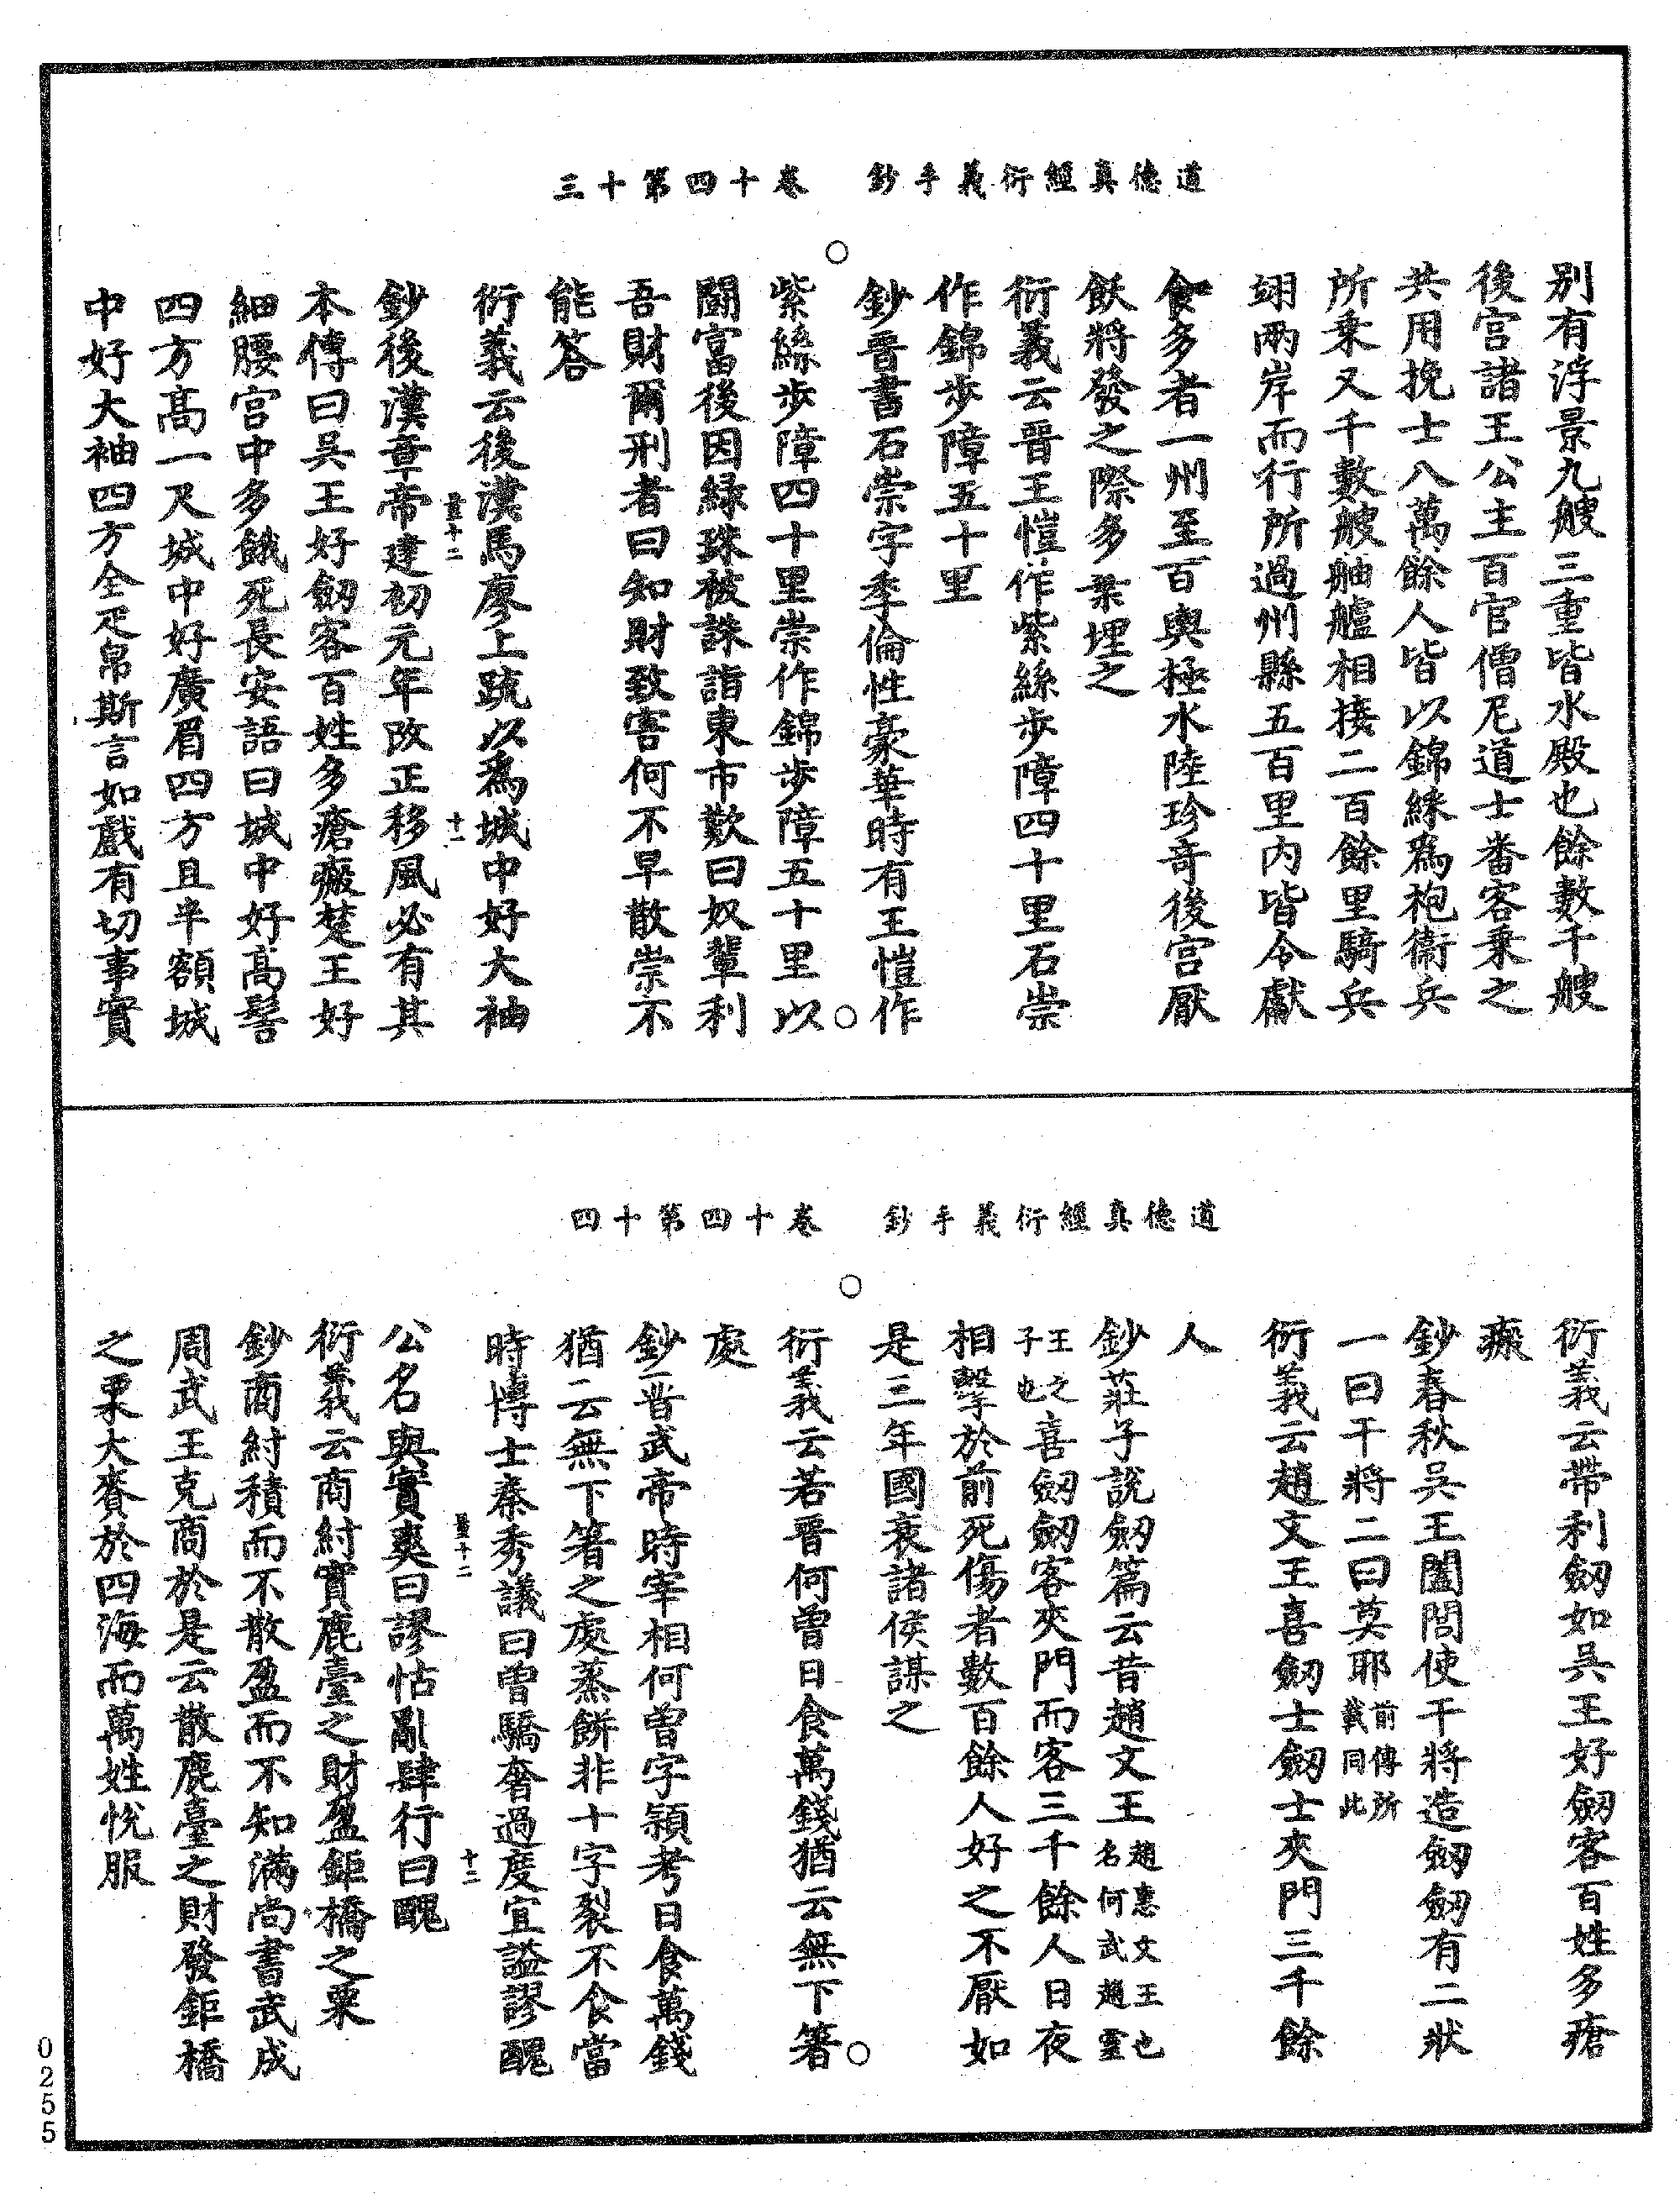 道德真經衍義手鈔　卷十四第十三
别有浮景九艘三重皆水殿也餘數千艘
後宮諸王公主百官僧尼道士番客乘之
共用挽士八萬餘人皆以錦綵為袍衛兵
所乘又千數艘舳艫相接二百餘里騎兵
翊兩岸而行所過州縣五百里内皆令獻
食多者一州至百輿極水陸珍奇後宮厭
飫將發之際多棄埋之
衍義云晉王愷作紫絲步障四十里石崇
作錦步障五十里
鈔晉書石崇字季倫性豪華時有王愷作
紫絲步障四十里崇作錦步障五十里以
鬪富後因緑珠被誅詣東市歎曰奴輩利
吾財爾刑者曰知財致害何不早散崇不
能答
衍義云後漢馬廖上疏以為城中好大袖
十一
鈔後漢章帝建初元年改正移風必有其
本傳曰吳王好劒客百姓多瘡瘢楚王好
細腰宮中多餓死長安語曰城中好髙髻
四方髙一尺城中好廣眉四方且半額城
中好大袖四方全疋帛斯言如戲有切事實
道德真經衍義手鈔　卷十四第十四
衍義云帶利劒如吳王好劒客百姓多瘡
瘢
鈔春秋吳王闔閭使干將造劒劒有二狀
一曰干將二曰莫耶前傳所載同此
衍義云趙文王喜劒士劒士夾門三千餘
人
鈔莊子說劒篇云昔趙文王趙惠文王也名何武趙靈
王之子也喜劒劒客夾門而客三千餘人日夜
相擊於前死傷者數百餘人好之不厭如
是三年國衰諸侯謀之
衍義云若晉何曾日食萬錢猶云無下箸
處
鈔晉武帝時宰相何曾字潁考日食萬錢
猶云無下箸之處蒸餅非十字裂不食當
時博士秦秀議曰曾驕奢過度宜謚謬醜
十二
公名與實爽曰謬怙亂肆行曰醜
衍義云商紂實鹿臺之財盈鉅橋之粟
鈔商紂積而不散盈而不知滿尚書武成
周武王克商於是云散鹿臺之財發鉅橋
之粟大賚於四海而萬姓悅服
0255